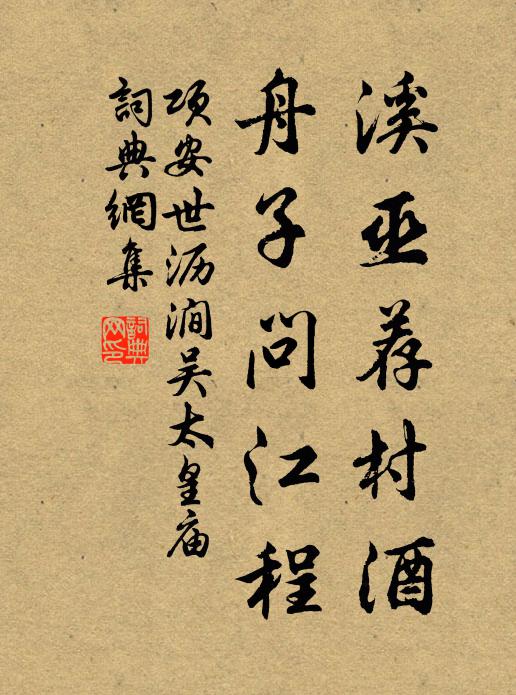 溪巫荐村酒
舟子问江程
项安世沥涧吴太皇庙
詞典網集
詞典网印